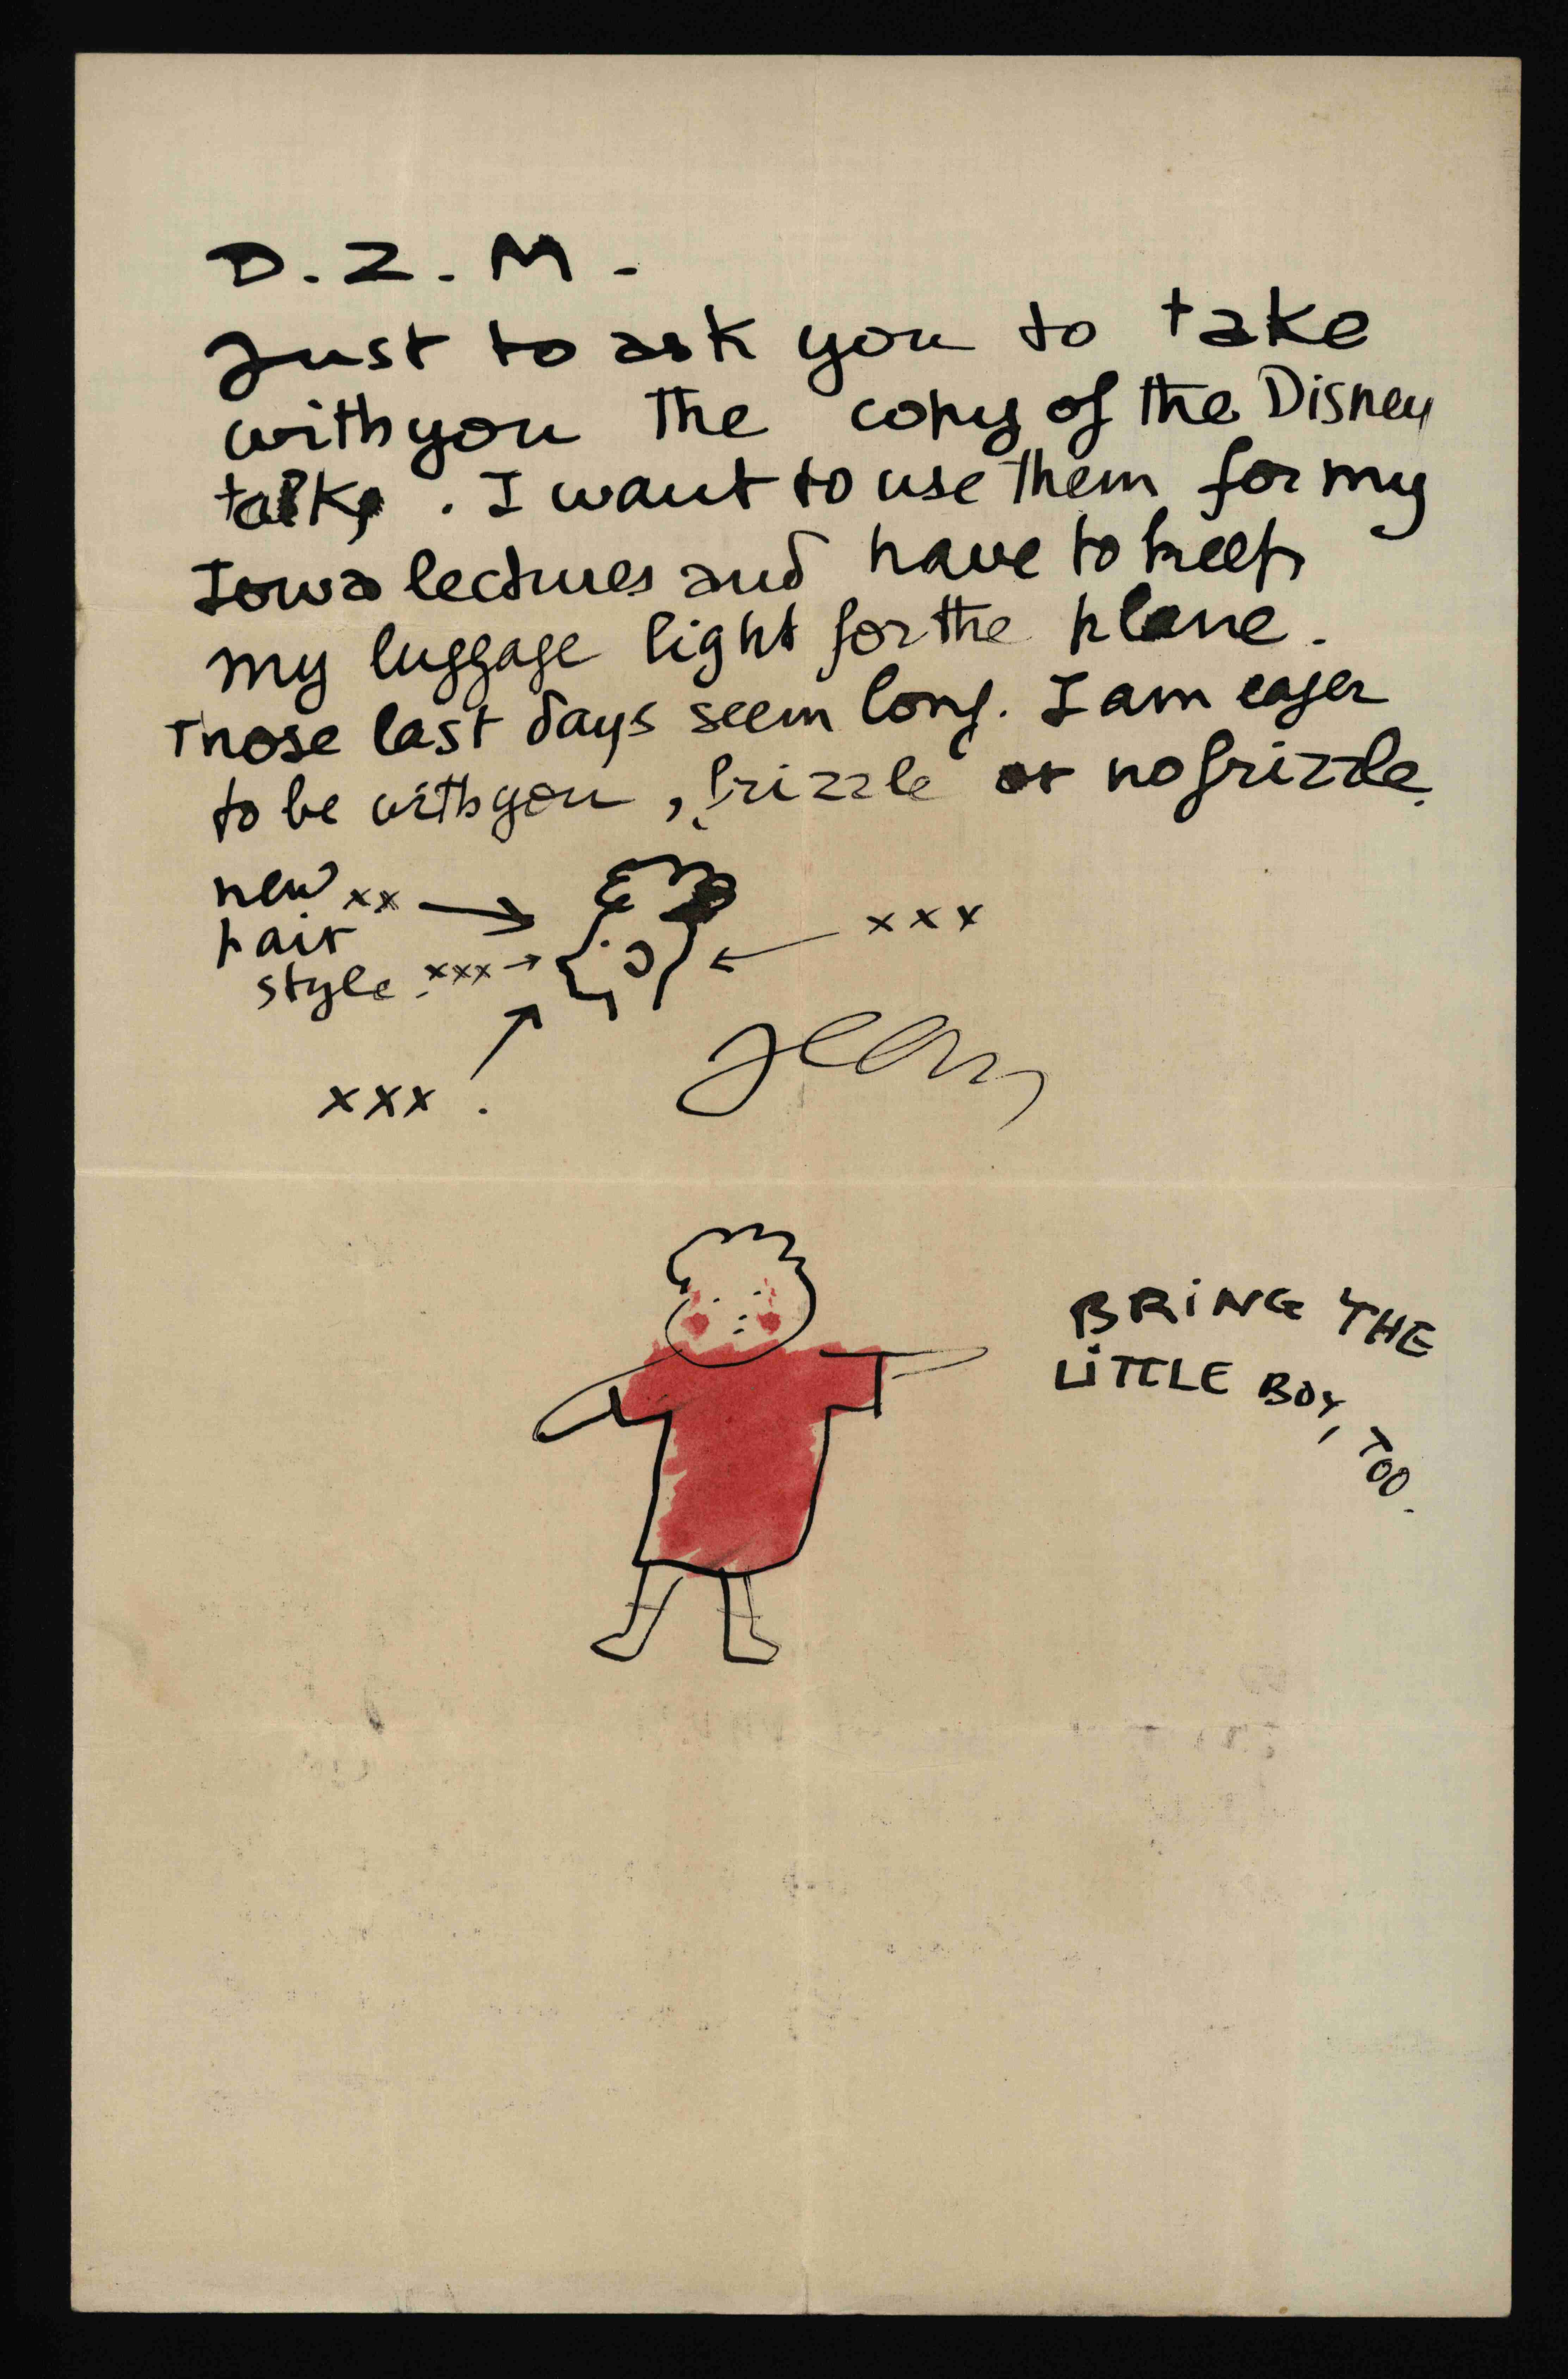 D. Z. M.
Just to ask you to take
with you the copy of the Disney
talks. I want to use them for my
Iowa lectures and have to keep
my luggage light for the plane.
Those last days seem long. I am eager
to be with you, frizzle or no frizzle.
new xx
hair
style xxx
xxx
xxx.
Jean
BRING THE
LITTLE BOY, TOO.